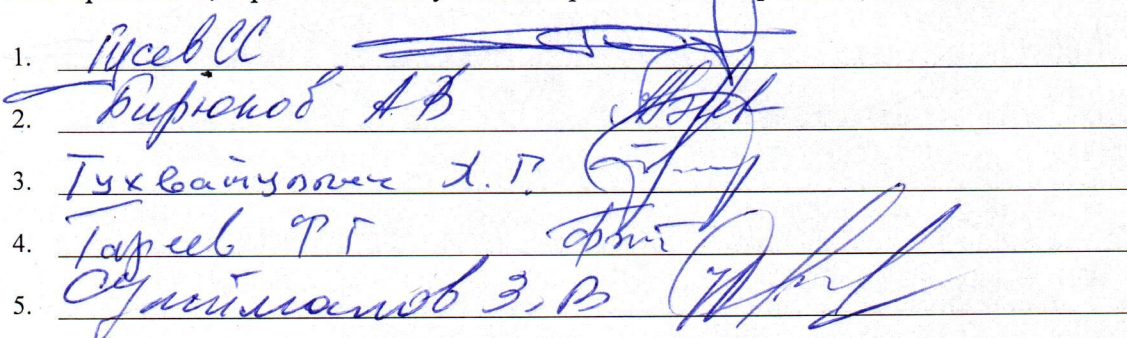 1. Гусев СС
2. Бирюков А В
3. Тухватуллин Х. Г.
4. Гареев Ф Г
5. Сулейманов З. В